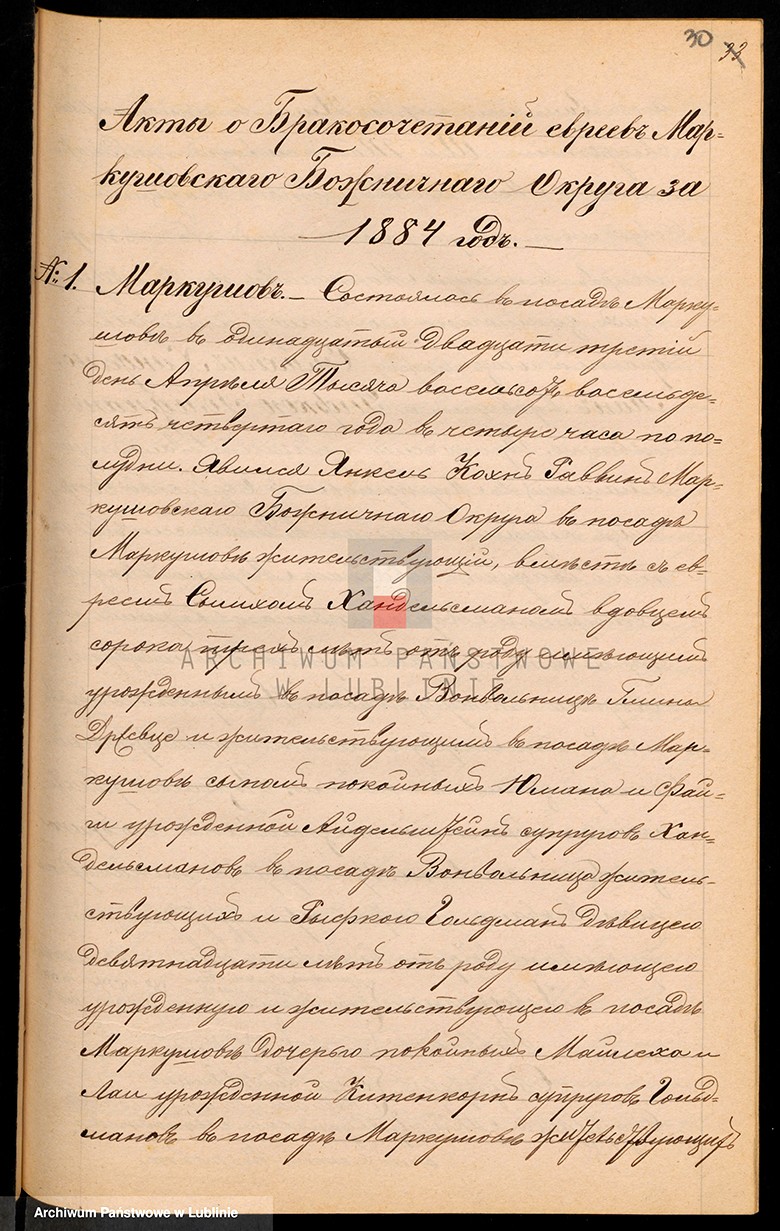 30 33
Акты о Бракосочетаній евреевъ Мар-
кушовскаго Божничнаго Округа за
1884 годъ.
№ 1. Маркушовъ. – Состоялось въ посадѣ Марку-
шовѣ въ одинадцатый двадцати третій
день Апрѣля Тысяча восемьсотъ восемьде-
сятъ четвертаго года въ четыре часа по по-
лудни. Явился Янкель Кохнъ Раввинъ Мар-
кушовскаго Божничнаго Округа въ посадѣ
Маркушовѣ жительствующій, вмѣстѣ съ ев-
реемъ Хандельсманомъ вдовцемъ
сорока трехъ лѣтъ отъ роду имѣющимъ
урожденнымъ въ посадѣ Вонвольницѣ Гмины
и жительствующимъ въ посадѣ Мар-
кушовѣ сыномъ покойныхъ и Фай-
ги урожденной супруговъ Хан-
дельсмановъ въ посадѣ Вонвольница житель-
ствующихъ и Рыфкою Гольдманъ дѣвицею
девятнадцати лѣтъ отъ роду имѣющею
урожденную и жительствующею въ посадѣ
Маркушовѣ дочерью покойныхъ Майлеха и
Лаи урожденной Китенкорнъ супруговъ Гольд-
мановъ въ посадѣ Маркушовѣ жительствующихъ
ARCHIWUM PAŃSTWOWE
W LUBLINIE
Archiwum Państwowe w Lublinie